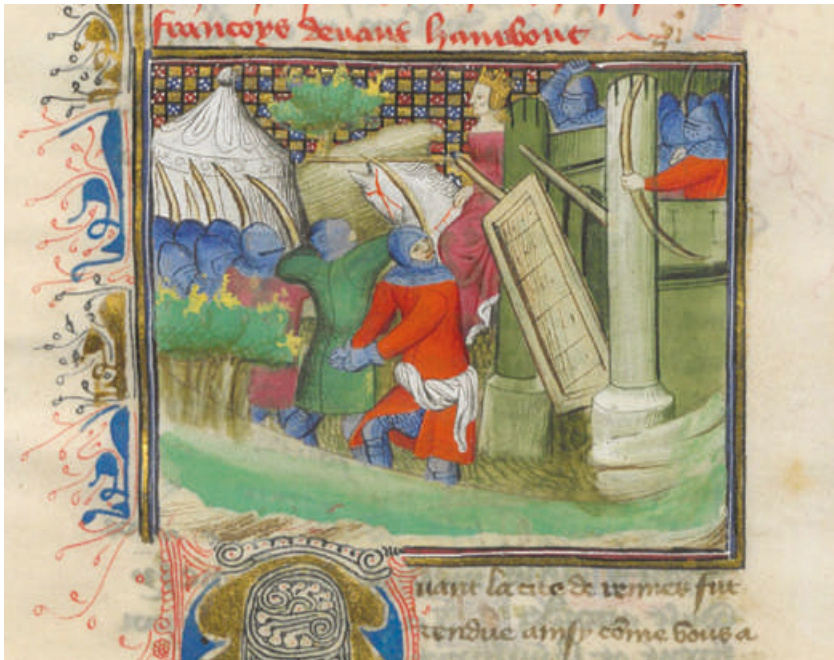 francoys devant hanibout
uant la cite de rennes fut
rendue ainsy cōme vous a